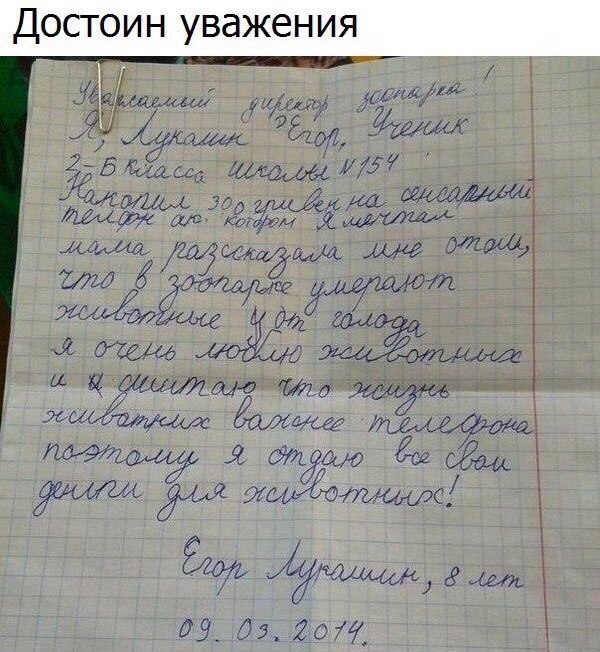 Достоин уважения
Уважаемый директор зоопарка!
Я, Лукашин Егор, Ученик
2-Б класса школы №154
Накопил 300 гривен на сенсарный
телефон аю. котором я мечтал
мама разсказала мне отом,
что в зоопарке умерают
животные от голода
я очень люблю животных
и сшитаю что жизнь
животних важнее телефона
поэтому я отдаю все свои
деньги для животных!
Егор Лукашин, 8 лет
09.03.2014.